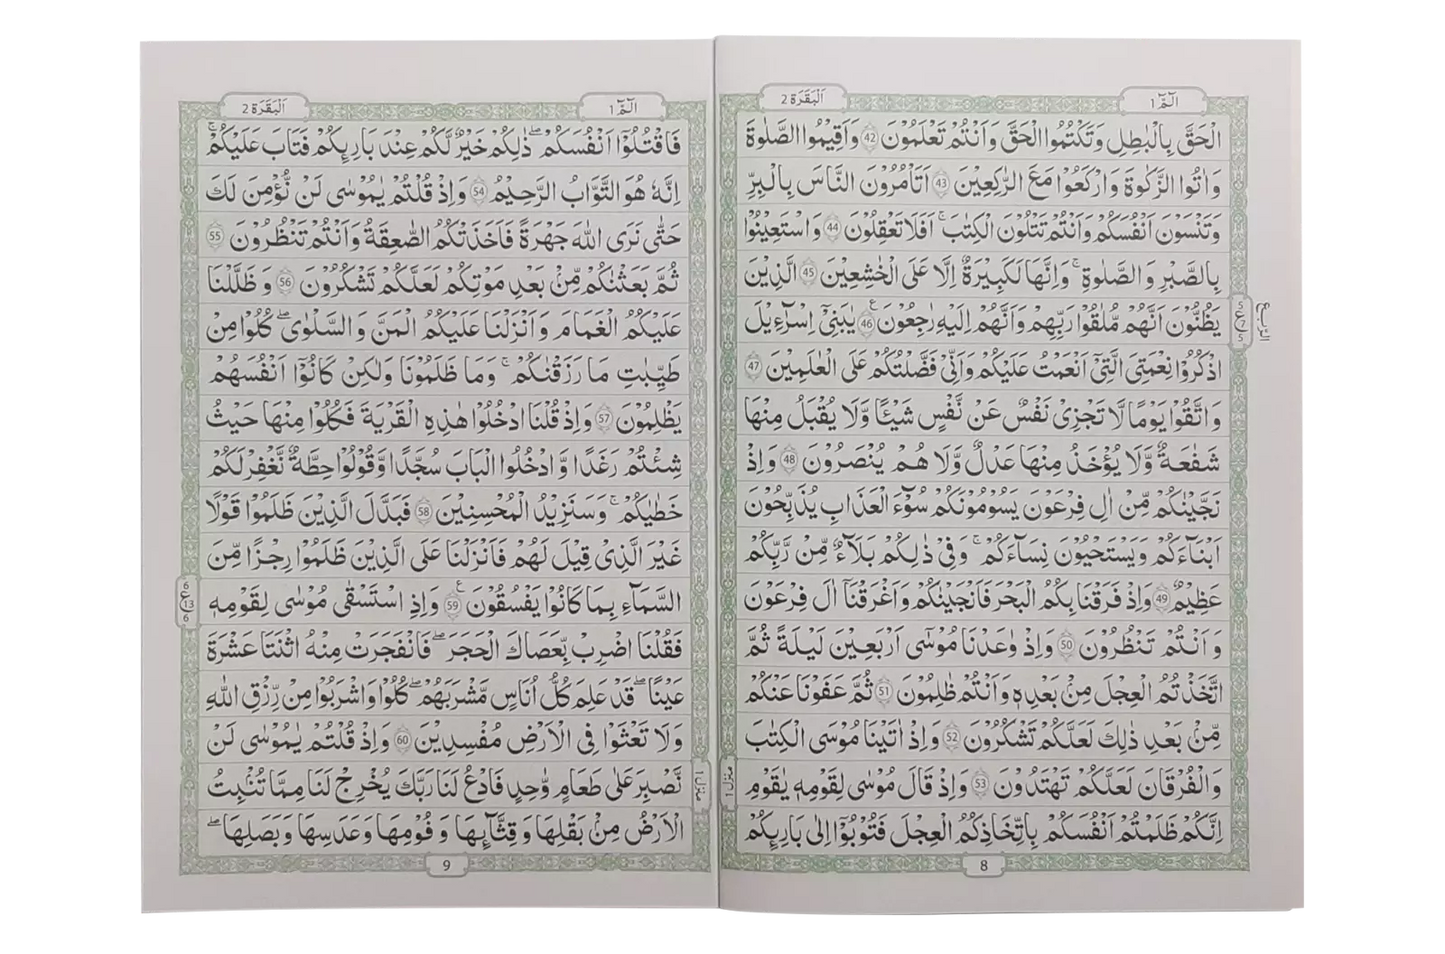 الٓمّٓ ١
اَلْبَقَرَة 2
الْحَقَّ بِالْبٰطِلِ وَتَكْتُمُوا الْحَقَّ وَاَنْتُمْ تَعْلَمُوْنَ 42 وَاَقِيْمُوا الصَّلٰوةَ
وَاٰتُوا الزَّكٰوةَ وَارْكَعُوْا مَعَ الرّٰكِعِيْنَ 43 اَتَاْمُرُوْنَ النَّاسَ بِالْبِرِّ
وَتَنْسَوْنَ اَنْفُسَكُمْ وَاَنْتُمْ تَتْلُوْنَ الْكِتٰبَ ؕ اَفَلَا تَعْقِلُوْنَ 44 وَاسْتَعِيْنُوْا
بِالصَّبْرِ وَالصَّلٰوةِ ؕ وَاِنَّهَا لَكَبِيْرَةٌ اِلَّا عَلَى الْخٰشِعِيْنَ 45 الَّذِيْنَ
يَظُنُّوْنَ اَنَّهُمْ مُّلٰقُوْا رَبِّهِمْ وَاَنَّهُمْ اِلَيْهِ رٰجِعُوْنَ ع 46 يٰبَنِيْٓ اِسْرَآءِيْلَ
اذْكُرُوْا نِعْمَتِيَ الَّتِيْٓ اَنْعَمْتُ عَلَيْكُمْ وَاَنِّيْ فَضَّلْتُكُمْ عَلَى الْعٰلَمِيْنَ 47
وَاتَّقُوْا يَوْمًا لَّا تَجْزِيْ نَفْسٌ عَنْ نَّفْسٍ شَيْـًٔا وَّلَا يُقْبَلُ مِنْهَا
شَفٰعَةٌ وَّلَا يُؤْخَذُ مِنْهَا عَدْلٌ وَّلَا هُمْ يُنْصَرُوْنَ 48 وَاِذْ
نَجَّيْنٰكُمْ مِّنْ اٰلِ فِرْعَوْنَ يَسُوْمُوْنَكُمْ سُوْٓءَ الْعَذَابِ يُذَبِّحُوْنَ
اَبْنَآءَكُمْ وَيَسْتَحْيُوْنَ نِسَآءَكُمْ ؕ وَفِيْ ذٰلِكُمْ بَلَآءٌ مِّنْ رَّبِّكُمْ
عَظِيْمٌ 49 وَاِذْ فَرَقْنَا بِكُمُ الْبَحْرَ فَاَنْجَيْنٰكُمْ وَاَغْرَقْنَآ اٰلَ فِرْعَوْنَ
وَاَنْتُمْ تَنْظُرُوْنَ 50 وَاِذْ وٰعَدْنَا مُوْسٰٓى اَرْبَعِيْنَ لَيْلَةً ثُمَّ
اتَّخَذْتُمُ الْعِجْلَ مِنْۢ بَعْدِهٖ وَاَنْتُمْ ظٰلِمُوْنَ 51 ثُمَّ عَفَوْنَا عَنْكُمْ
مِّنْۢ بَعْدِ ذٰلِكَ لَعَلَّكُمْ تَشْكُرُوْنَ 52 وَاِذْ اٰتَيْنَا مُوْسَى الْكِتٰبَ
وَالْفُرْقَانَ لَعَلَّكُمْ تَهْتَدُوْنَ 53 وَاِذْ قَالَ مُوْسٰى لِقَوْمِهٖ يٰقَوْمِ
اِنَّكُمْ ظَلَمْتُمْ اَنْفُسَكُمْ بِاتِّخَاذِكُمُ الْعِجْلَ فَتُوْبُوْٓا اِلٰى بَارِئِكُمْ
الربع
5
ع 7
5
منزل ١
8
الٓمّٓ ١
اَلْبَقَرَة 2
فَاقْتُلُوْٓا اَنْفُسَكُمْ ۖ ذٰلِكُمْ خَيْرٌ لَّكُمْ عِنْدَ بَارِئِكُمْ فَتَابَ عَلَيْكُمْ ؕ
اِنَّهٗ هُوَ التَّوَّابُ الرَّحِيْمُ 54 وَاِذْ قُلْتُمْ يٰمُوْسٰى لَنْ نُّؤْمِنَ لَكَ
حَتّٰى نَرَى اللّٰهَ جَهْرَةً فَاَخَذَتْكُمُ الصّٰعِقَةُ وَاَنْتُمْ تَنْظُرُوْنَ 55
ثُمَّ بَعَثْنٰكُمْ مِّنْۢ بَعْدِ مَوْتِكُمْ لَعَلَّكُمْ تَشْكُرُوْنَ 56 وَظَلَّلْنَا
عَلَيْكُمُ الْغَمَامَ وَاَنْزَلْنَا عَلَيْكُمُ الْمَنَّ وَالسَّلْوٰى ۖ كُلُوْا مِنْ
طَيِّبٰتِ مَا رَزَقْنٰكُمْ ؕ وَمَا ظَلَمُوْنَا وَلٰكِنْ كَانُوْٓا اَنْفُسَهُمْ
يَظْلِمُوْنَ 57 وَاِذْ قُلْنَا ادْخُلُوْا هٰذِهِ الْقَرْيَةَ فَكُلُوْا مِنْهَا حَيْثُ
شِئْتُمْ رَغَدًا وَّادْخُلُوا الْبَابَ سُجَّدًا وَّقُوْلُوْا حِطَّةٌ نَّغْفِرْ لَكُمْ
خَطٰيٰكُمْ ؕ وَسَنَزِيْدُ الْمُحْسِنِيْنَ 58 فَبَدَّلَ الَّذِيْنَ ظَلَمُوْا قَوْلًا
غَيْرَ الَّذِيْ قِيْلَ لَهُمْ فَاَنْزَلْنَا عَلَى الَّذِيْنَ ظَلَمُوْا رِجْزًا مِّنَ
السَّمَآءِ بِمَا كَانُوْا يَفْسُقُوْنَ ع 59 وَاِذِ اسْتَسْقٰى مُوْسٰى لِقَوْمِهٖ
فَقُلْنَا اضْرِبْ بِّعَصَاكَ الْحَجَرَ ۖ فَانْفَجَرَتْ مِنْهُ اثْنَتَا عَشْرَةَ
عَيْنًا ۖ قَدْ عَلِمَ كُلُّ اُنَاسٍ مَّشْرَبَهُمْ ۖ كُلُوْا وَاشْرَبُوْا مِنْ رِّزْقِ اللّٰهِ
وَلَا تَعْثَوْا فِي الْاَرْضِ مُفْسِدِيْنَ 60 وَاِذْ قُلْتُمْ يٰمُوْسٰى لَنْ
نَّصْبِرَ عَلٰى طَعَامٍ وَّاحِدٍ فَادْعُ لَنَا رَبَّكَ يُخْرِجْ لَنَا مِمَّا تُنْۢبِتُ
الْاَرْضُ مِنْۢ بَقْلِهَا وَقِثَّآئِهَا وَفُوْمِهَا وَعَدَسِهَا وَبَصَلِهَا ۖ
6
ع 13
6
منزل ١
9